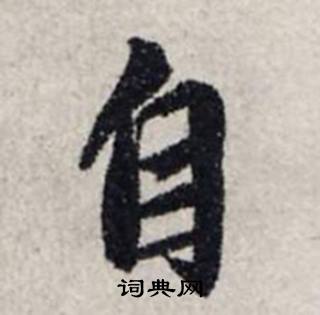 自
词典网